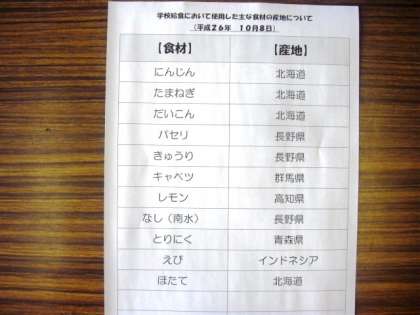 学校給食において使用した主な食材の産地について
（平成２６年　１０月８日）
【食材】 【産地】
にんじん 北海道
たまねぎ 北海道
だいこん 北海道
パセリ 長野県
きゅうり 長野県
キャベツ 群馬県
レモン 高知県
なし（南水） 長野県
とりにく 青森県
えび インドネシア
ほたて 北海道